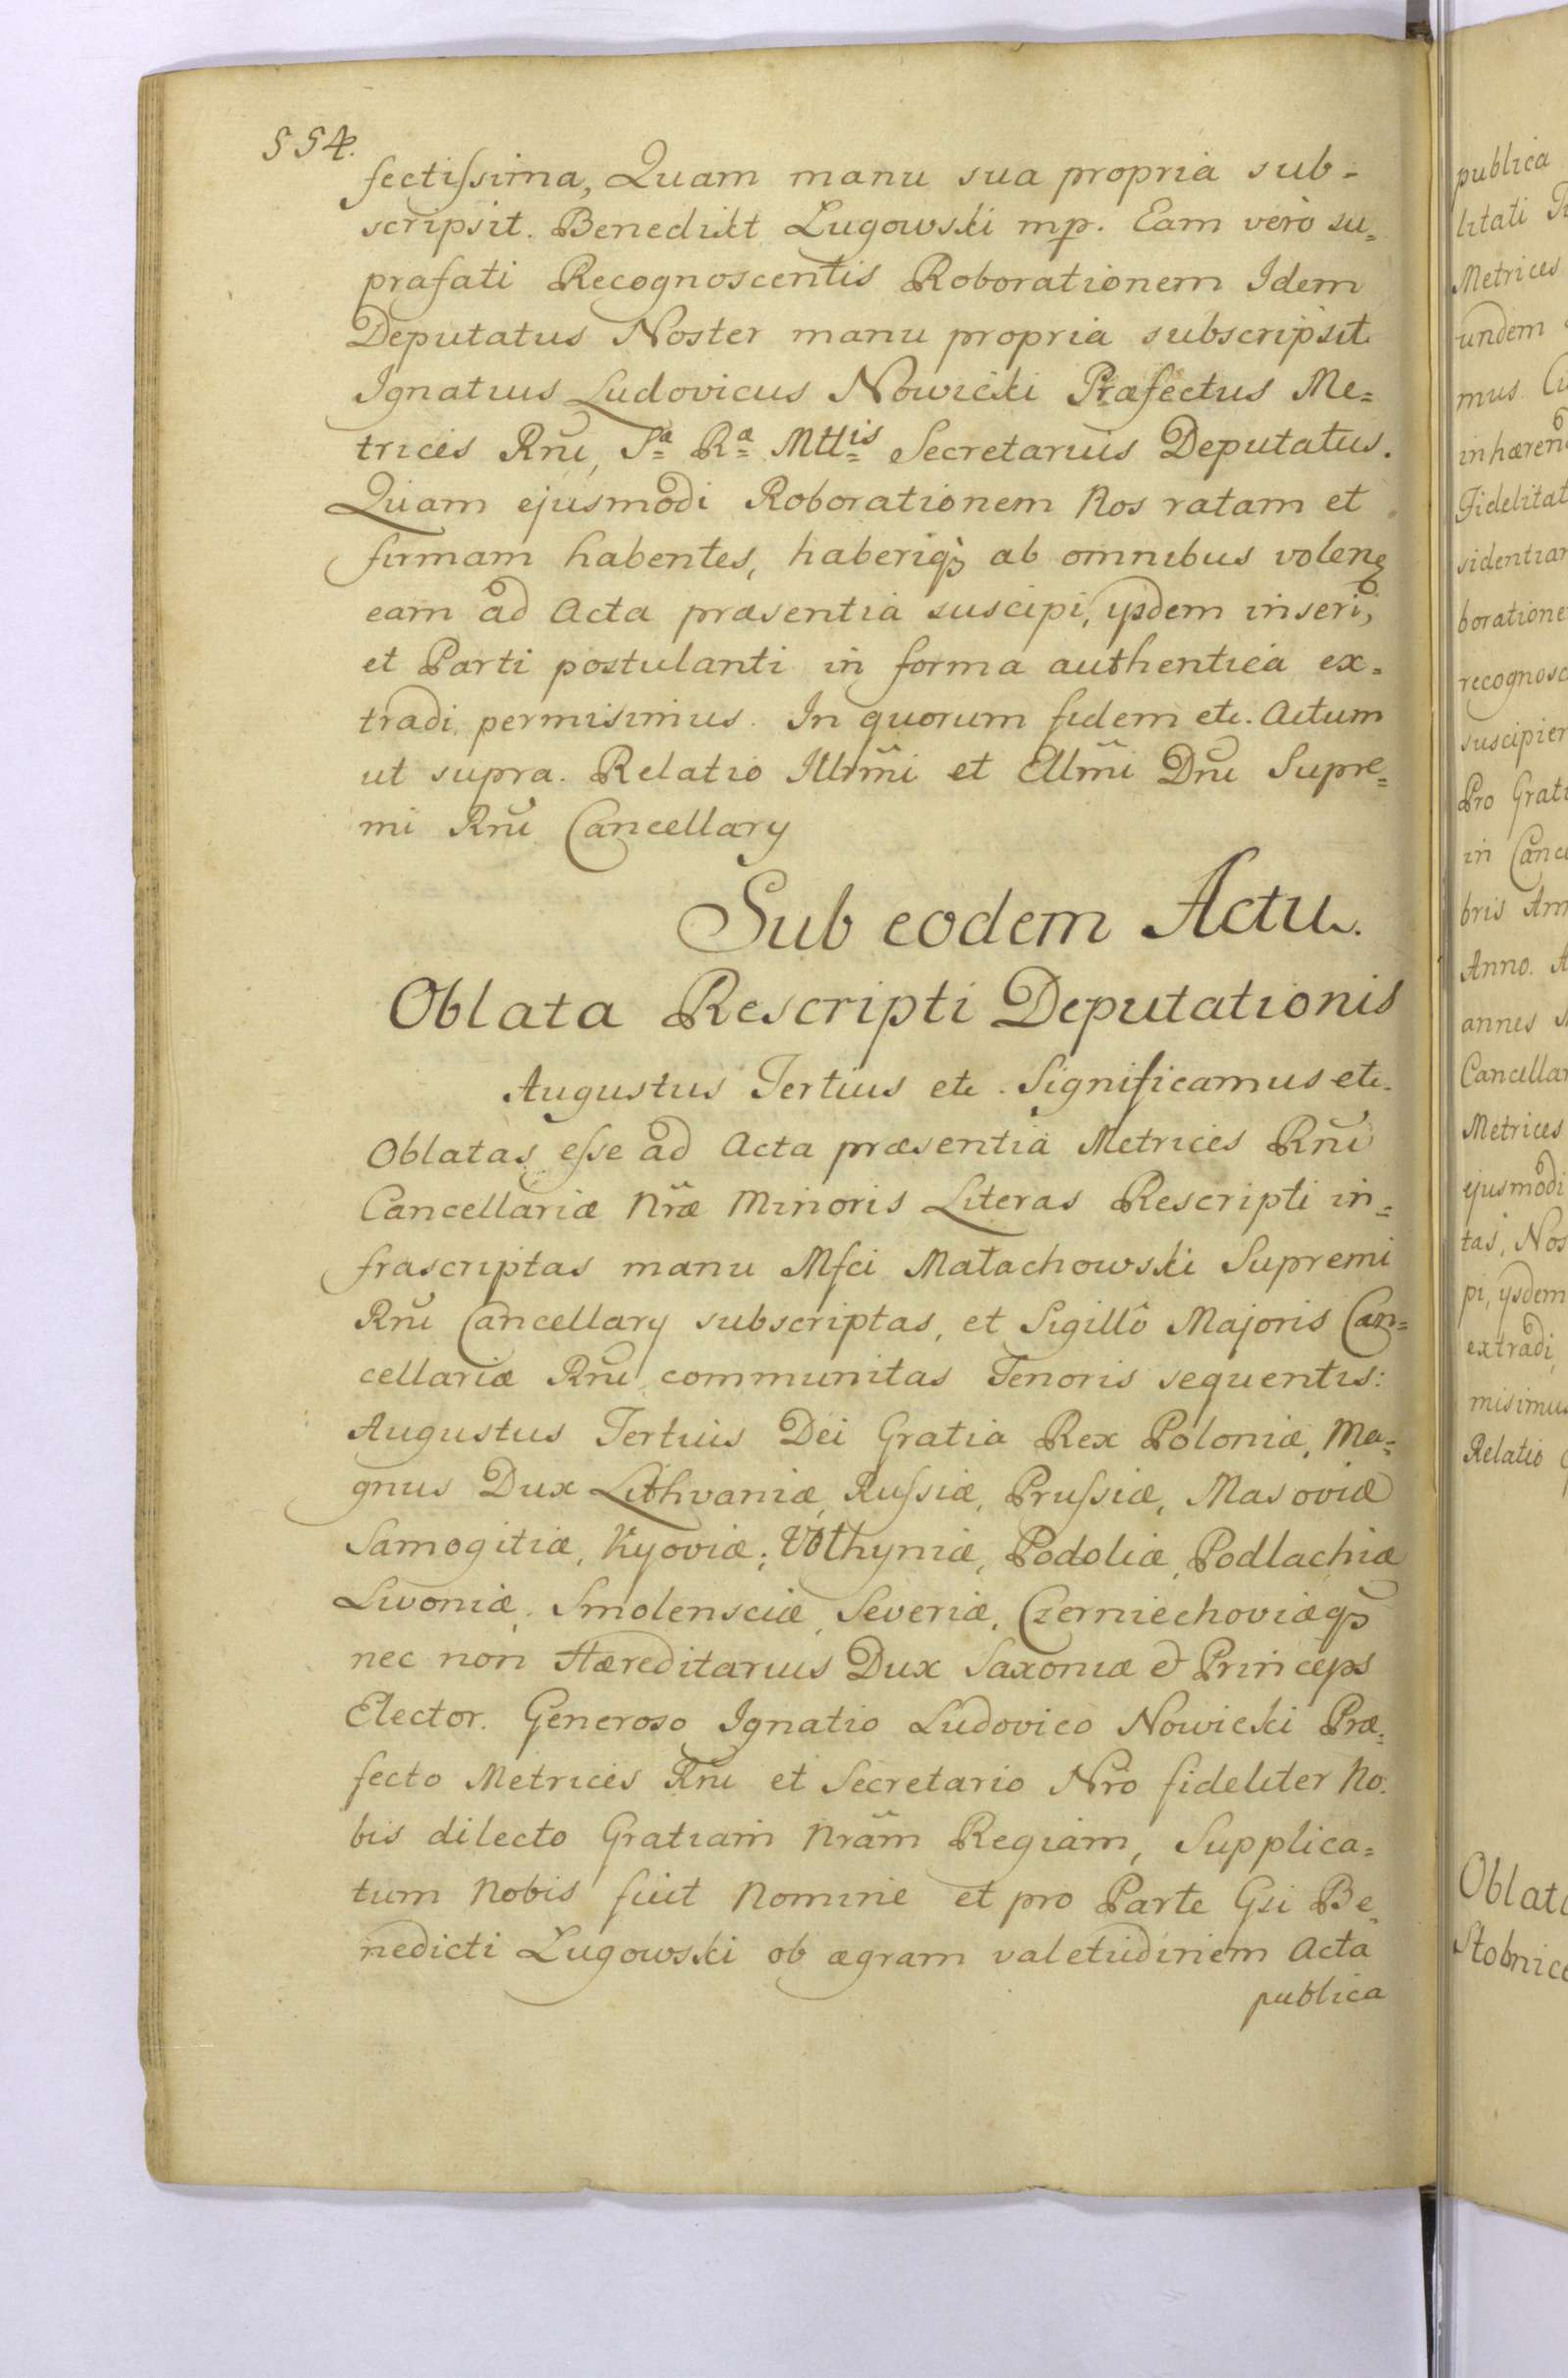 554.
fectissima, Quam manu sua propria sub=
scripsit. Benedikt Lugowski mp. Eam vero su=
prafati Recognoscentis Roborationem Idem
Deputatus Noster manu propria subscripsit
Ignatius Ludovicus Nowicki Præfectus Me=
trices Rñi, Sª Rª Mttis Secretarius Deputatus.
Quam ejusmodi Roborationem Nos ratam et
firmam habentes, haberiq₃ ab omnibus volen̄
eam ad Acta præsentia suscipi, ysdem inseri,
et Parti postulanti in forma authentica ex=
tradi permisimus. In quorum fidem etc. Actum
ut supra. Relatio Illrm̃i et Ellm̃i Dñi Supre=
mi Rñi Cancellary
Sub eodem Actu.
Oblata Rescripti Deputationis
Augustus Tertius etc. Significamus etc.
Oblatas esse ad Acta præsentia Metrices Rñi
Cancellariæ Nr̃æ Minoris Literas Rescripti in=
frascriptas manu Mfci Małachowski Supremi
Rñi Cancellary subscriptas, et Sigillô Majoris Can=
cellariæ Rñi communitas Tenoris sequentis:
Augustus Tertius Dei Gratia Rex Poloniæ, Ma=
gnus Dux Lithvaniæ, Russiæ, Prussiæ, Masoviæ
Samogitiæ, Kyoviæ, Volhyniæ, Podoliæ, Podlachiæ
Livoniæ, Smolensciæ, Severiæ, Czerniechoviæq₃
nec non Hæreditarius Dux Saxoniæ & Princeps
Elector. Generoso Ignatio Ludovico Nowicki Præ=
fecto Metrices Rñi et Secretario Nr̃o fideliter No=
bis dilecto Gratiam Nr̃am Regiam, Supplica=
tum Nobis fuit Nomine et pro Parte Gsi Be=
nedicti Lugowski ob ægram valetudinem Acta
publica
publica
litati
Metrices
undem
mus
Fidelitat
boratione
recognosc
suscipier
Pro Grati
in Cance
bris Ann
Anno. A
annes
Cancellar
Metrices
ejusmodi
tas, Nos
pi, ysdem
extradi
misimus
Relatio
Oblata
Stobnice